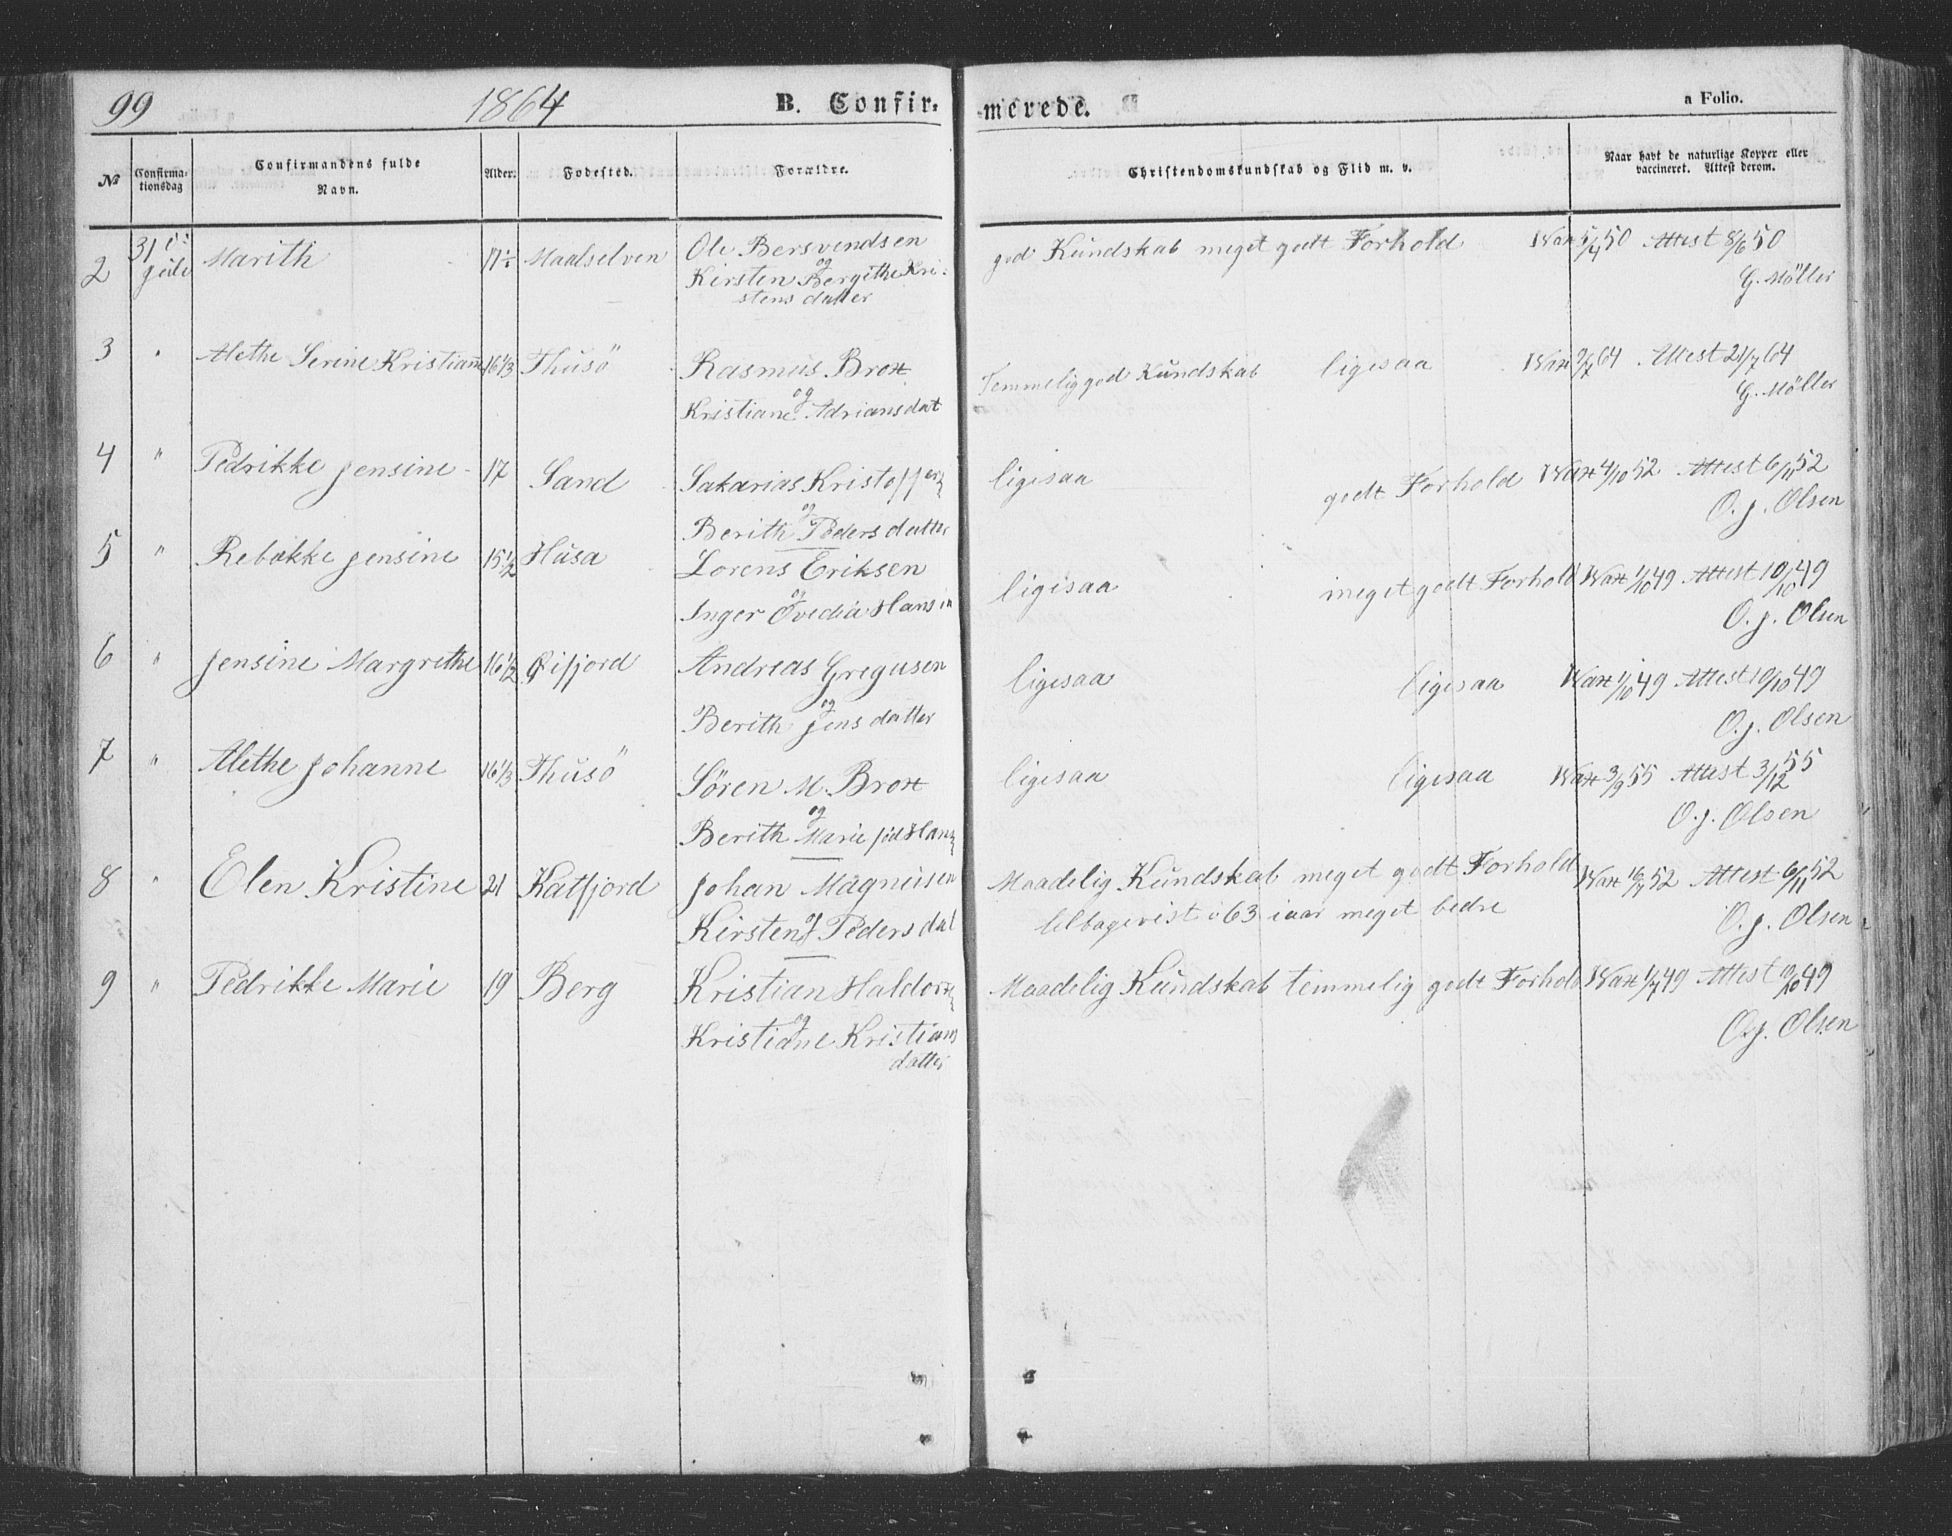 99 1864 B. Confir- merede. a Folio.
№ Confirmationsdag Confirmandens fulde Navn. Alder. Fødested. Forældre. Christendomskundskab og Flid m. v. Naar havt de naturlige Kopper eller vaccineret. Attest derom.
2 31 Juli Marith Maalselven Ole Bersvendsen god Kundskab meget godt Forhold 50 Attest 8/6 50
og
Kirsten Bergithe Kri-
stensdatter G. Möller
3 " Alethe Serine Kristiane 16 1/3 Thusö Rasmus Brox Temmelig god Kundskab ligesaa 64 Attest 21/7 64
og G. Möller
Kristiane Adriansdat
4 " Pedrikke Jensine 17 Sand Sakarias Kristoffer ligesaa godt Forhold Vax 4/10 52 Attest 6/11 52
og O. J. Olsen
Berith Pedersdatter
5 " Rebække Jensine 15 1/2 Husa Lorens Eriksen ligesaa meget godt Forhold Vax 1/10 49 Attest 10/10 49
og O. J. Olsen
Inger Ovedia Hansin
6 " Jensine Margrethe 16 1/2 Øifjord Andreas Gregusen ligesaa ligesaa Vax 1/10 49 Attest 10/10 49
og O. J. Olsen
Berith Jensdatter
7 " Alethe Johanne 16 1/3 Thusö Sören M. Brox ligesaa ligesaa Vax 3/9 55 Attest 3/12 55
og O. J. Olsen
Berith Marie föd Han
8 " Elen Kristine 21 Katfjord Johan Magnusen Maadelig Kundskab meget godt Forhold 52 Attest 6/11 52
og tilbagevist i 63 iaar meget bedre O. J. Olsen
Kirsten Pedersdat
9 " Pedrikke Marie 19 Berg Kristian Haldor Maadelig Kundskab temmelig godt Forhold Vax 1/7 49 Attest 10/10 49
og O. J. Olsen
Kristiane Kristians
datter